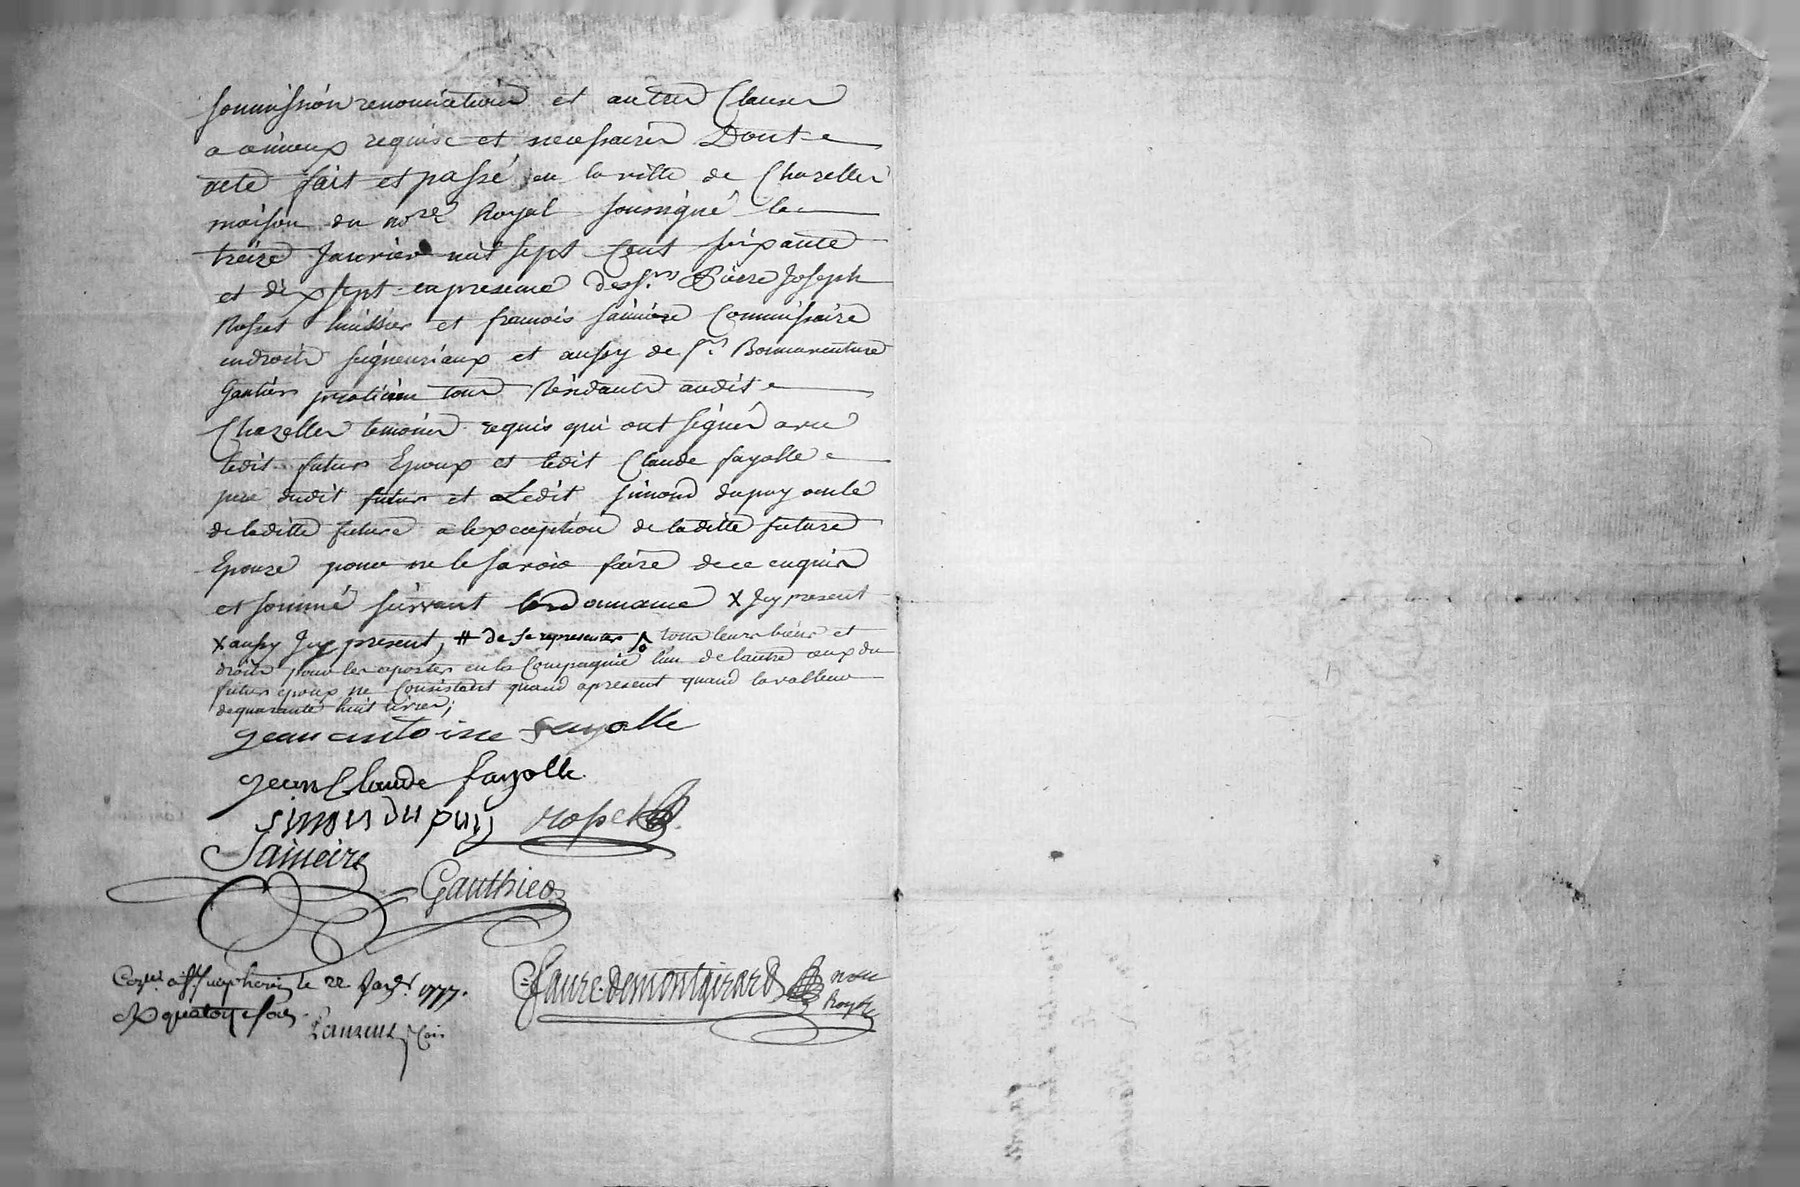 soumission renonciation et autres Clauses
a ce mieux requise et necessaires Dont
acte fait et passé en la ville de Chazelles
maison du no.re Royal soussigné le
treize Janvier mil sept Cent soixante
et dix sept en presence des s.rs Pierre Joseph
Rosset huissier et francois saimeire Commissaire
en droits seigneuriaux et aussy de s.r Bonnaventure
Gautier praticien tous Residants audit
Chazelles temoins requis qui ont signés avec
ledit futur Epoux et ledit Claude fayolle
pere dudit futur et Ledit simond dupuy oncle
de laditte future a lexception de laditte future
Epouze pour ne le savoir faire de ce enquis
et sommé suivant lordonnance x Icy present
x aussy Icy present, # de se representer, tous leurs biens et
droits pour les aporter en la Compagnie l'un de lautre ceux du
futur epoux ne Consistent quand apresent quand la valleur
de quarante huit livres;
jean antoine fayolle
jean Claude fayolle
simon du puy Rosset
Saimeire
Gauthier
le 22 Janv.r 1777.
quatorze sols
Laurent
faure demontgirard no.re
Royal